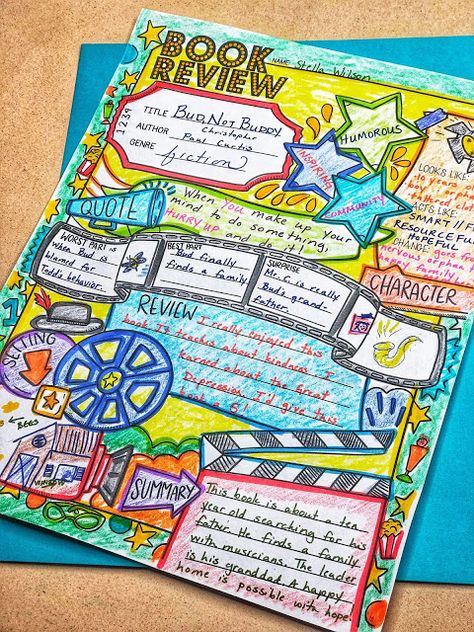 BOOK
REVIEW
NAME Stella Wilson
1239
TITLE Bud, Not Buddy
AUTHOR Christopher
Paul Curtis
GENRE fiction
INSPIRING
HUMOROUS
COMMUNITY
LOOKS LIKE:
10 years
boy
tattered
ACTS LIKE:
SMART // 
RESOURCEFUL
HOPEFUL
CHANGE: goes from
nervous orphan
happy family.
CHARACTER
QUOTE
When You make up your
mind to do something,
HURRY UP and do it!
WORST PART is
when Bud is
blamed for
Todd's behavior.
BEST PART
Bud finally
finds a family.
SURPRISE
Mr. C. is really
Bud's grand-
father.
REVIEW
I really enjoyed this
book. It teaches about kindness. I
learned about the Great
Depression. I'd give this
book a 5!
SETTING
BEES
SUMMARY
This book is about a ten
year old searching for his
father. He finds a family
with musicians. The leader
is his granddad. A happy
home is possible with hope.